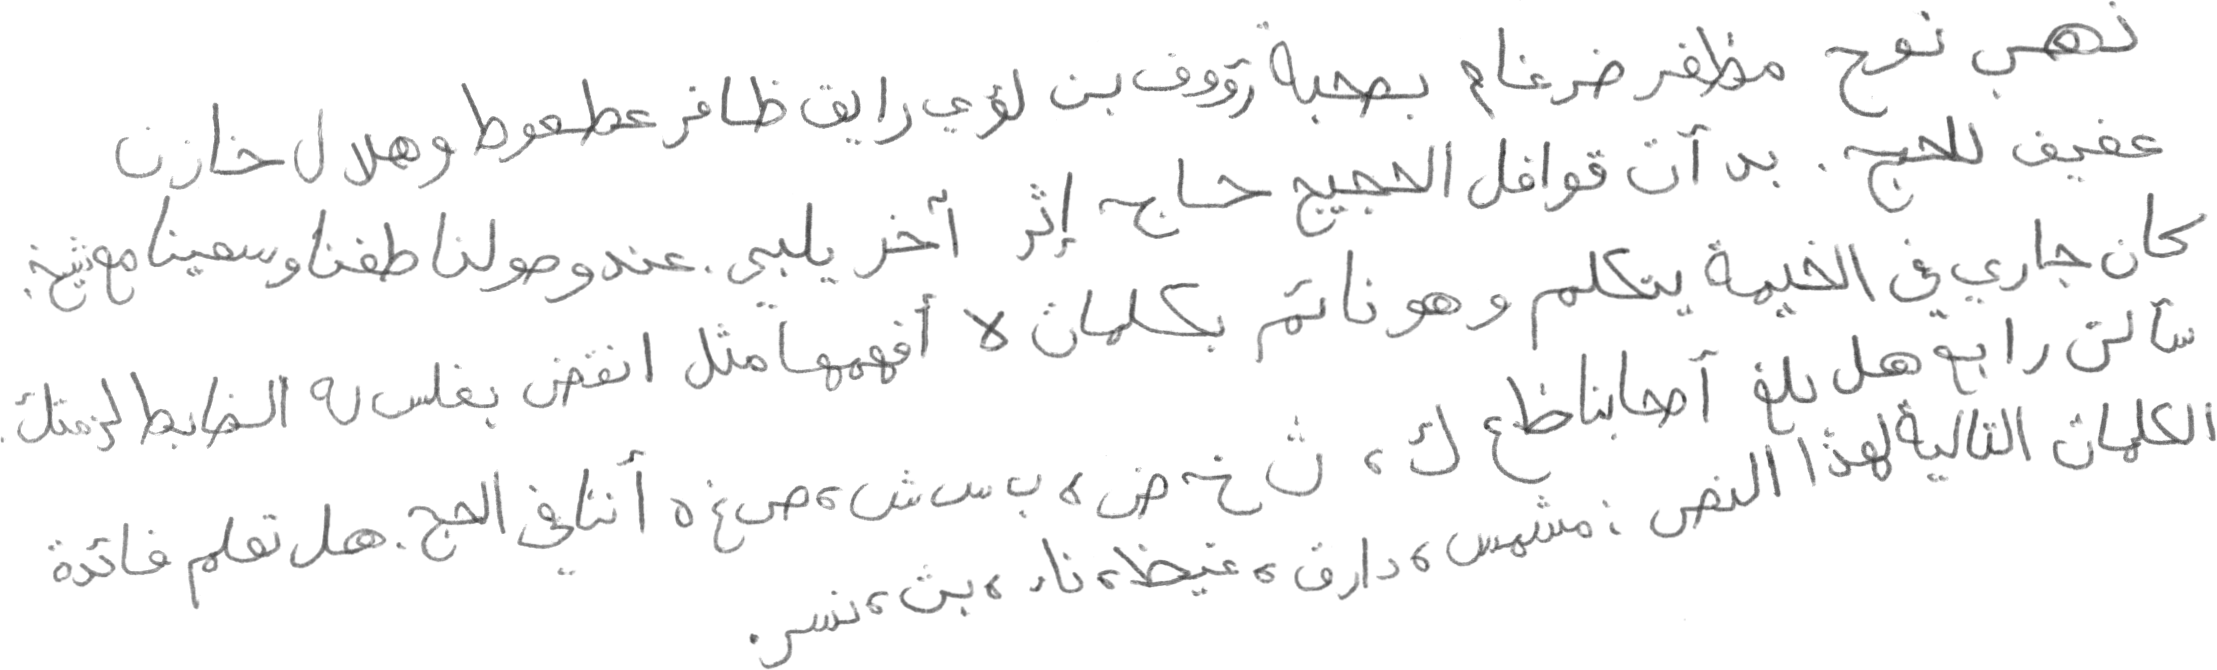 ذهب نوح مظفر ضرغام بصحبة رؤوف بن لؤي رايق ظافر عطعوط وهلال خازن
عفيف للحج. بدأت قوافل الحجيج حاج إثر آخر يلبي. عند وصولنا طفنا وسعينا مع شيخ.
كان جاري في الخيمة يتكلم وهو نائم بكلمات لا أفهمها مثل انقض بغلس له الضابط لزمتك.
سألت رابع هل بلغ أصحابنا ظع ك، ث خ ض، ب س ش، ص غ ه أننا في الحج. هل تعلم فائدة
الكلمات التالية لهذا النص: مشمس، دارق، غيظ، ناء، بث، نسر.